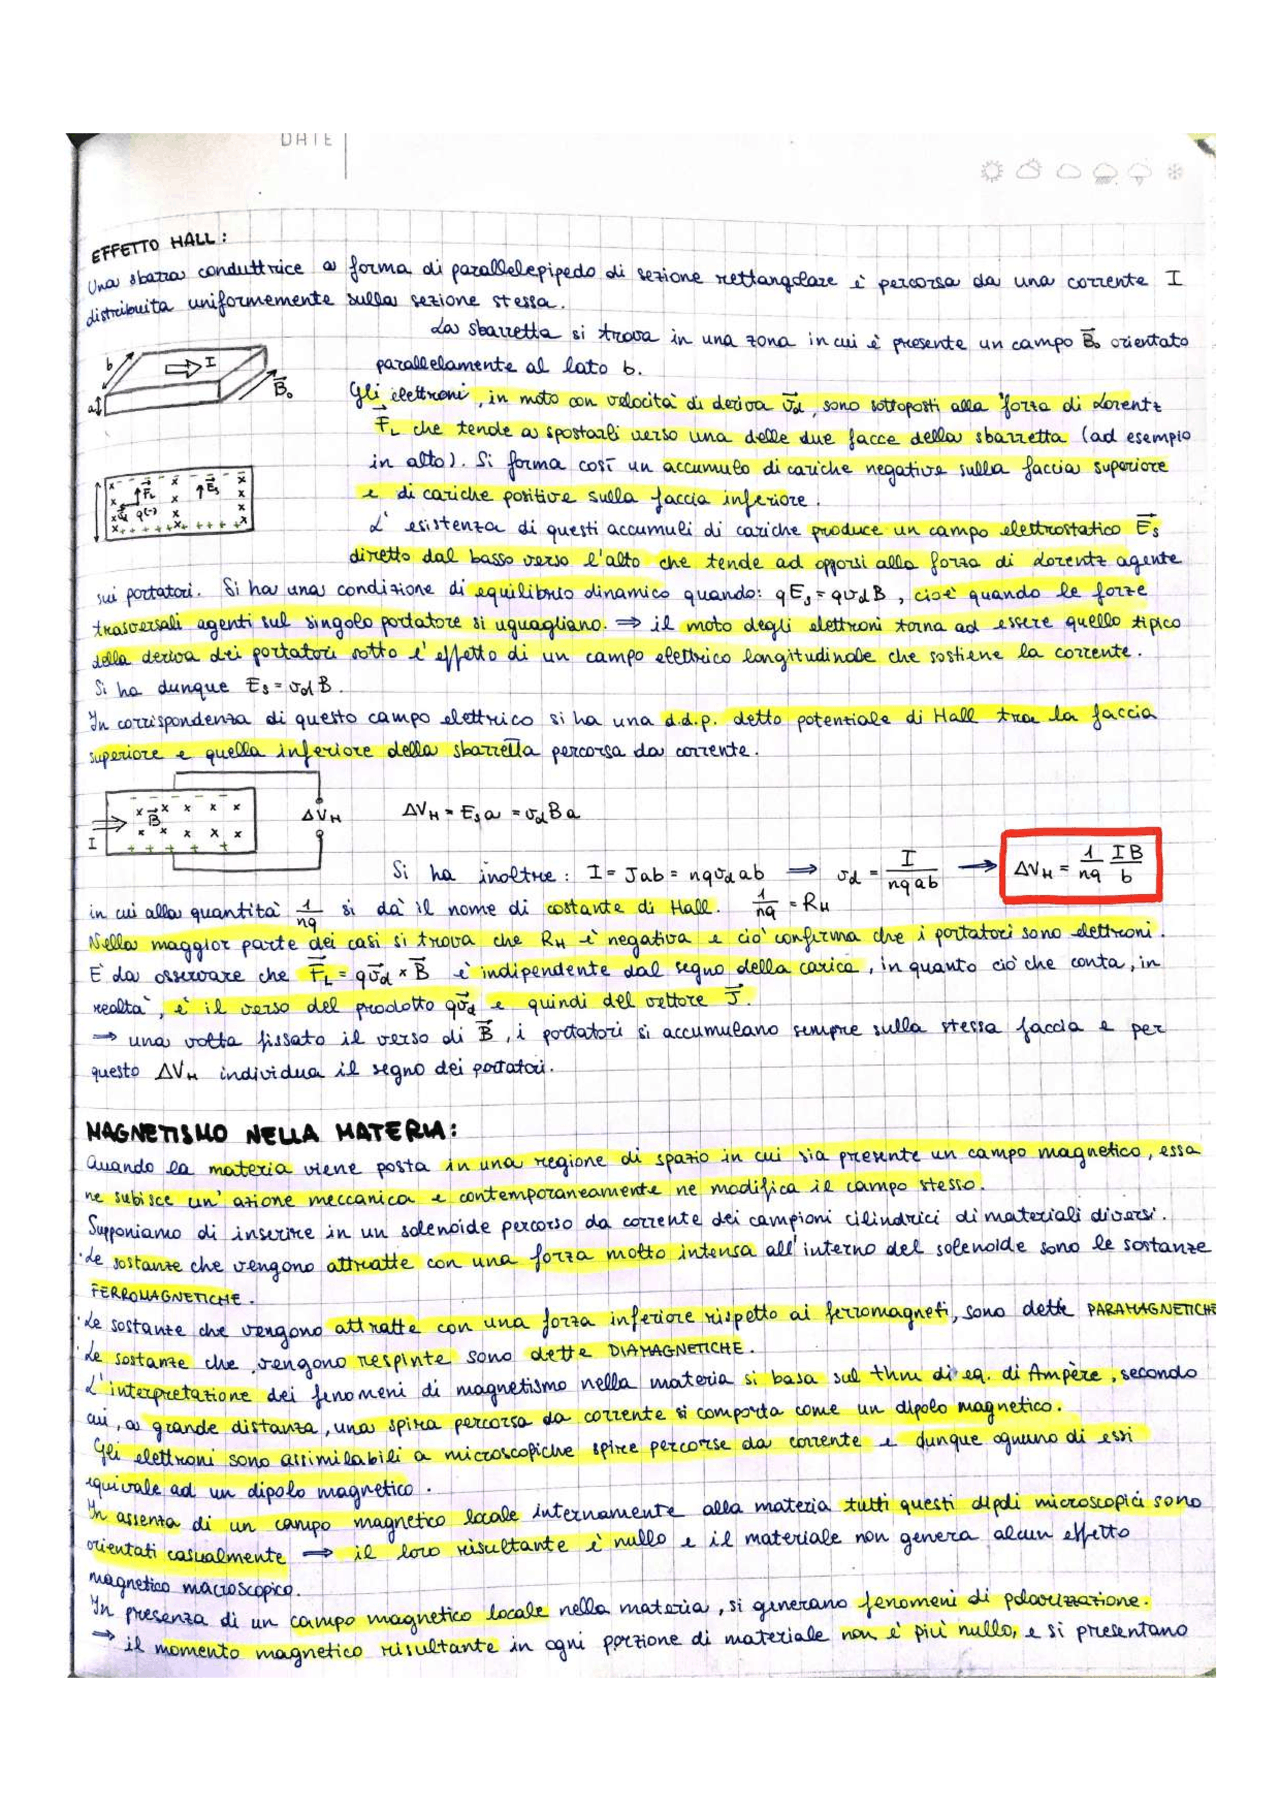 DATE
EFFETTO HALL:
Una sbarra conduttrice a forma di parallelepipedo di sezione rettangolare è percorsa da una corrente I
distribuita uniformemente sulla sezione stessa.
La sbarretta si trova in una zona in cui è presente un campo B⃗₀ orientato
parallelamente al lato b.
b I a B⃗₀
Gli elettroni, in moto con velocità di deriva v⃗d, sono sottoposti alla forza di Lorentz
F⃗L che tende a spostarli verso una delle due facce della sbarretta (ad esempio
in alto). Si forma così un accumulo di cariche negative sulla faccia superiore
e di cariche positive sulla faccia inferiore.
F⃗L E⃗s
v⃗d q(-)
L'esistenza di questi accumuli di cariche produce un campo elettrostatico E⃗s
diretto dal basso verso l'alto che tende ad opporsi alla forza di Lorentz agente
sui portatori. Si ha una condizione di equilibrio dinamico quando: qEs = qvdB, cioè quando le forze
trasversali agenti sul singolo portatore si uguagliano. ⇒ il moto degli elettroni torna ad essere quello tipico
della deriva dei portatori sotto l'effetto di un campo elettrico longitudinale che sostiene la corrente.
Si ha dunque Es = vdB.
In corrispondenza di questo campo elettrico si ha una d.d.p. detto potenziale di Hall tra la faccia
superiore e quella inferiore della sbarretta percorsa da corrente.
B⃗ I ΔVH
ΔVH = Esa = vdBa
Si ha inoltre: I = Jab = nqvdab ⇒ vd = I/nqab → ΔVH = 1/nq IB/b
in cui alla quantità 1/nq si dà il nome di costante di Hall. 1/nq = RH
Nella maggior parte dei casi si trova che RH è negativa e ciò conferma che i portatori sono elettroni.
E da osservare che F⃗L = qv⃗d × B⃗ è indipendente dal segno della carica, in quanto ciò che conta, in
realtà, è il verso del prodotto qv⃗d e quindi del vettore J⃗.
⇒ una volta fissato il verso di B⃗, i portatori si accumulano sempre sulla stessa faccia e per
questo ΔVH individua il segno dei portatori.
MAGNETISMO NELLA MATERIA:
Quando la materia viene posta in una regione di spazio in cui sia presente un campo magnetico, essa
ne subisce un'azione meccanica e contemporaneamente ne modifica il campo stesso.
Supponiamo di inserire in un solenoide percorso da corrente dei campioni cilindrici di materiali diversi.
·Le sostanze che vengono attratte con una forza molto intensa all'interno del solenoide sono le sostanze
FERROMAGNETICHE.
·Le sostanze che vengono attratte con una forza inferiore rispetto ai ferromagneti, sono dette PARAMAGNETICHE
·Le sostanze che vengono respinte sono dette DIAMAGNETICHE.
L'interpretazione dei fenomeni di magnetismo nella materia si basa sul thm di eq. di Ampère, secondo
cui, a grande distanza, una spira percorsa da corrente si comporta come un dipolo magnetico.
Gli elettroni sono assimilabili a microscopiche spire percorse da corrente e dunque ognuno di essi
equivale ad un dipolo magnetico.
In assenza di un campo magnetico locale internamente alla materia tutti questi dipoli microscopici sono
orientati casualmente ⇒ il loro risultante è nullo e il materiale non genera alcun effetto
magnetico macroscopico.
In presenza di un campo magnetico locale nella materia, si generano fenomeni di polarizzazione.
⇒ il momento magnetico risultante in ogni porzione di materiale non è più nullo, e si presentano